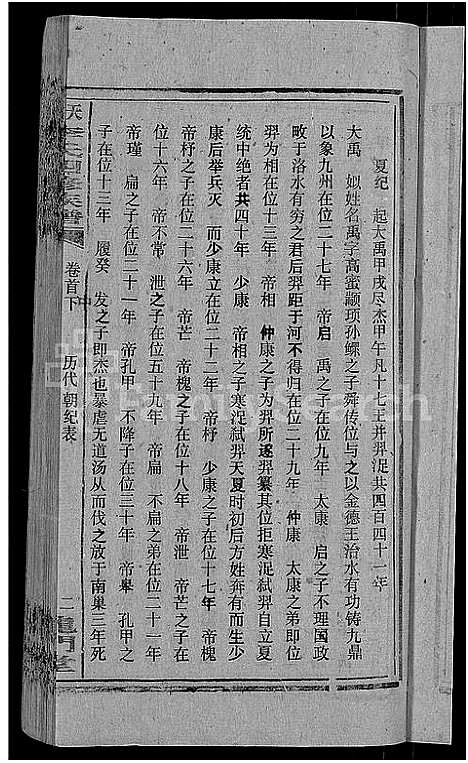 夏纪　起大禹甲戌尽杰甲午凡十七王并羿浞共四百四十一年
大禹　姒姓名禹字高蜜颛顼孙鲧之子舜传位与之以金德王治水有功铸九鼎
以象九州在位二十七年　帝启　禹之子在位九年　太康　启之子不理国政
畋于洛水有穷之君后羿距于河不得归在位二十九年　仲康　太康之弟即位
羿为相在位十三年　帝相　仲康之子为羿所逐羿纂其位拒寒浞弑羿自立夏
统中绝者共四十年　少康　帝相之子寒浞弑羿天夏时初后方姓奔有而生少
康后举兵灭　而少康立在位二十二年　帝杼　少康之子在位十七年　帝槐
帝杼之子在位二十六年　帝芒　帝槐之子在位十八年　帝泄　帝芒之子在
位十六年　帝不常　泄之子在位五十九年　帝扁　不扁之弟在位二十一年
帝瑾　扁之子在位二十一年　帝孔甲　不降子在位三十年　帝皋　孔甲之
子在位十三年　履癸　发之子即杰也暴虐无道汤从而伐之放于南巢三年死
卷首下
历代朝纪表
二